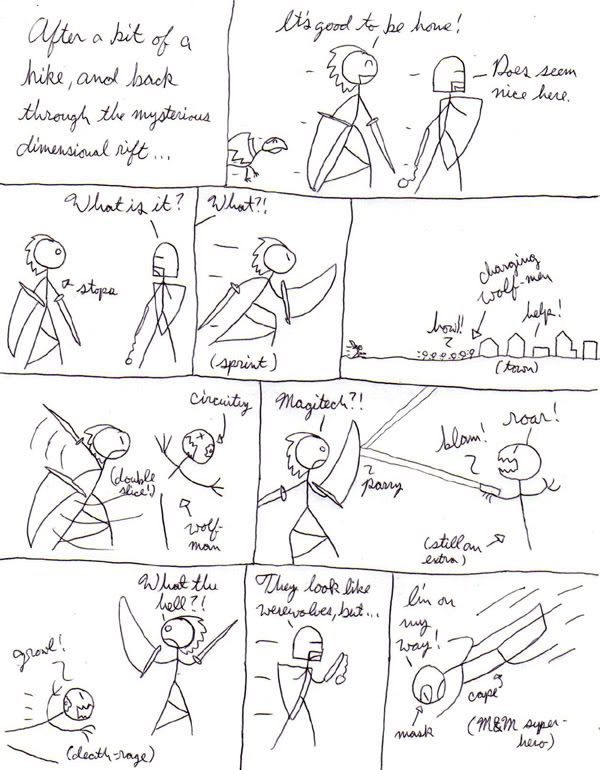 After a bit of a
hike, and back
through the mysterious
dimensional rift...
It's good to be home!
Does seem
nice here.
What is it?
stops
What?!
(sprint)
charging
wolf-men
howl!
help!
(town)
(double
slice!)
circuitry
wolf-
man
Magitech?!
parry
blam!
roar!
(still an
extra)
growl!
(death-rage)
What the
hell?!
They look like
werewolves, but...
I'm on
my
way!
mask
cape
(M&M super-
hero)